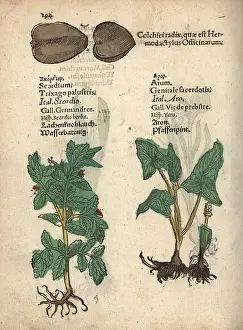 294
Colchici radix, quæ est Her-
modactylus Officinarum.
Scardium;
Trixago palustris;
Ital. Scordio.
Gall. Germandree.
Hisp. Scordio herba.
Lachenknoblauch.
Wasserbatenig.
Arum.
Genitale sacerdotis;
Ital. Aro,
Gall. Vit de prebstre.
Hisp. Yaro.
Aron.
Pfaffenpint.